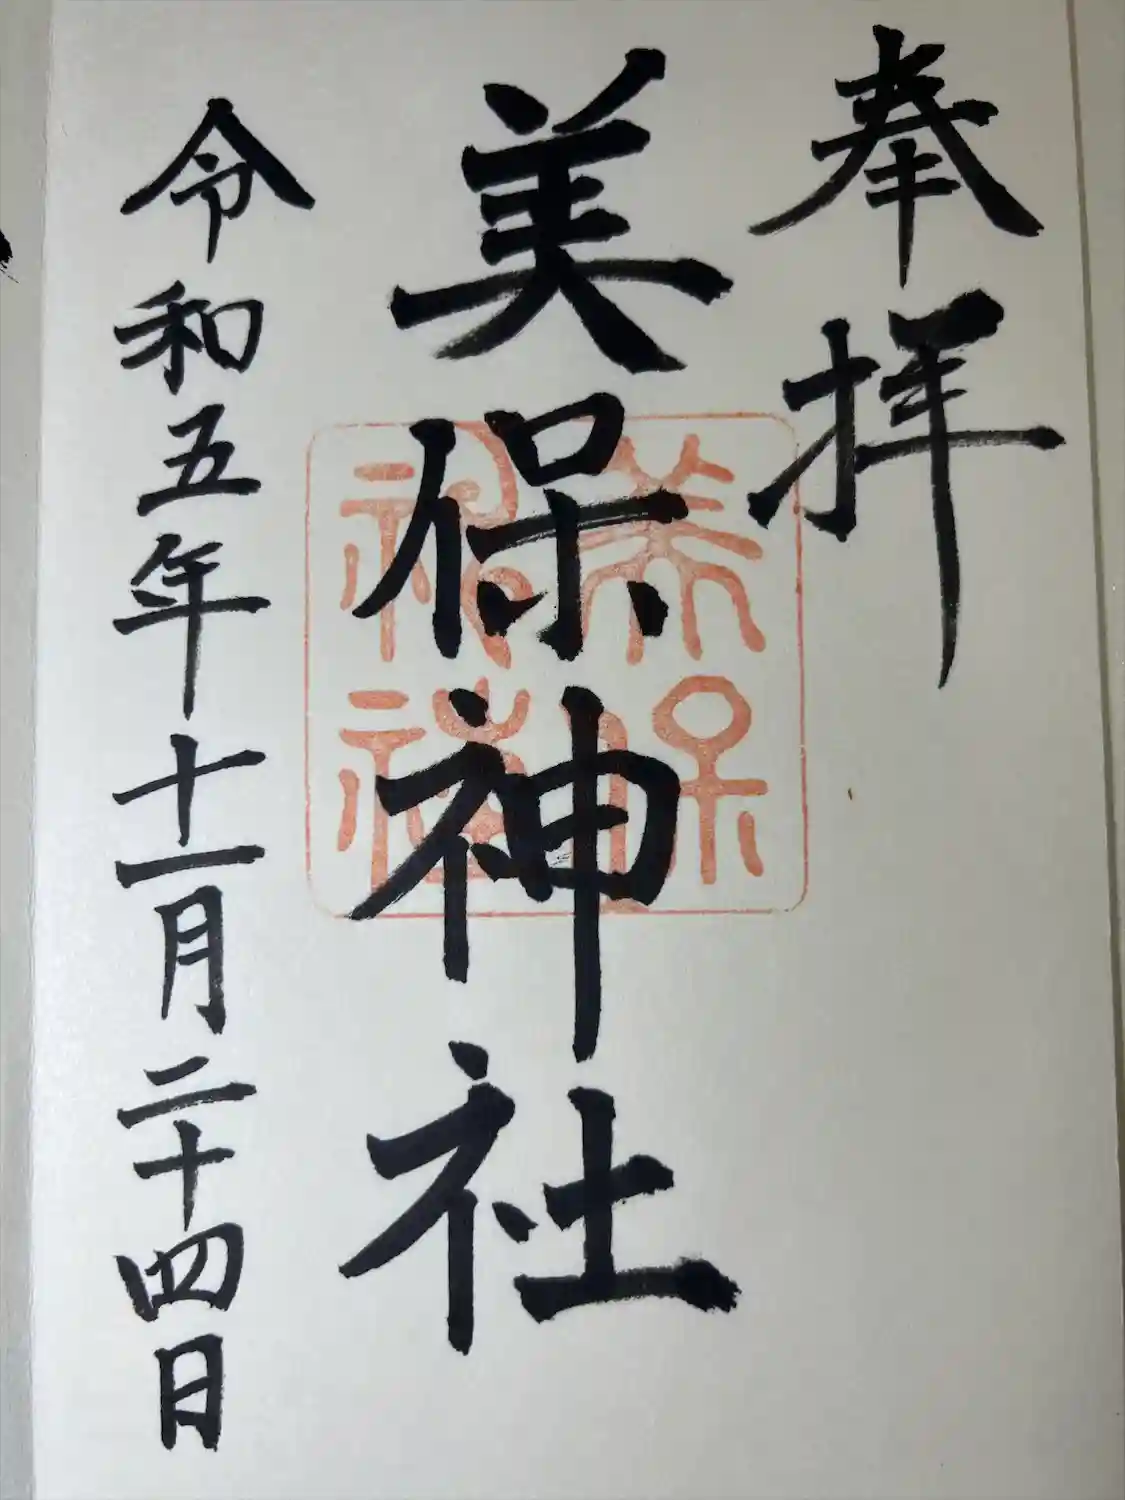 奉拝
美保神社
令和五年十一月二十四日